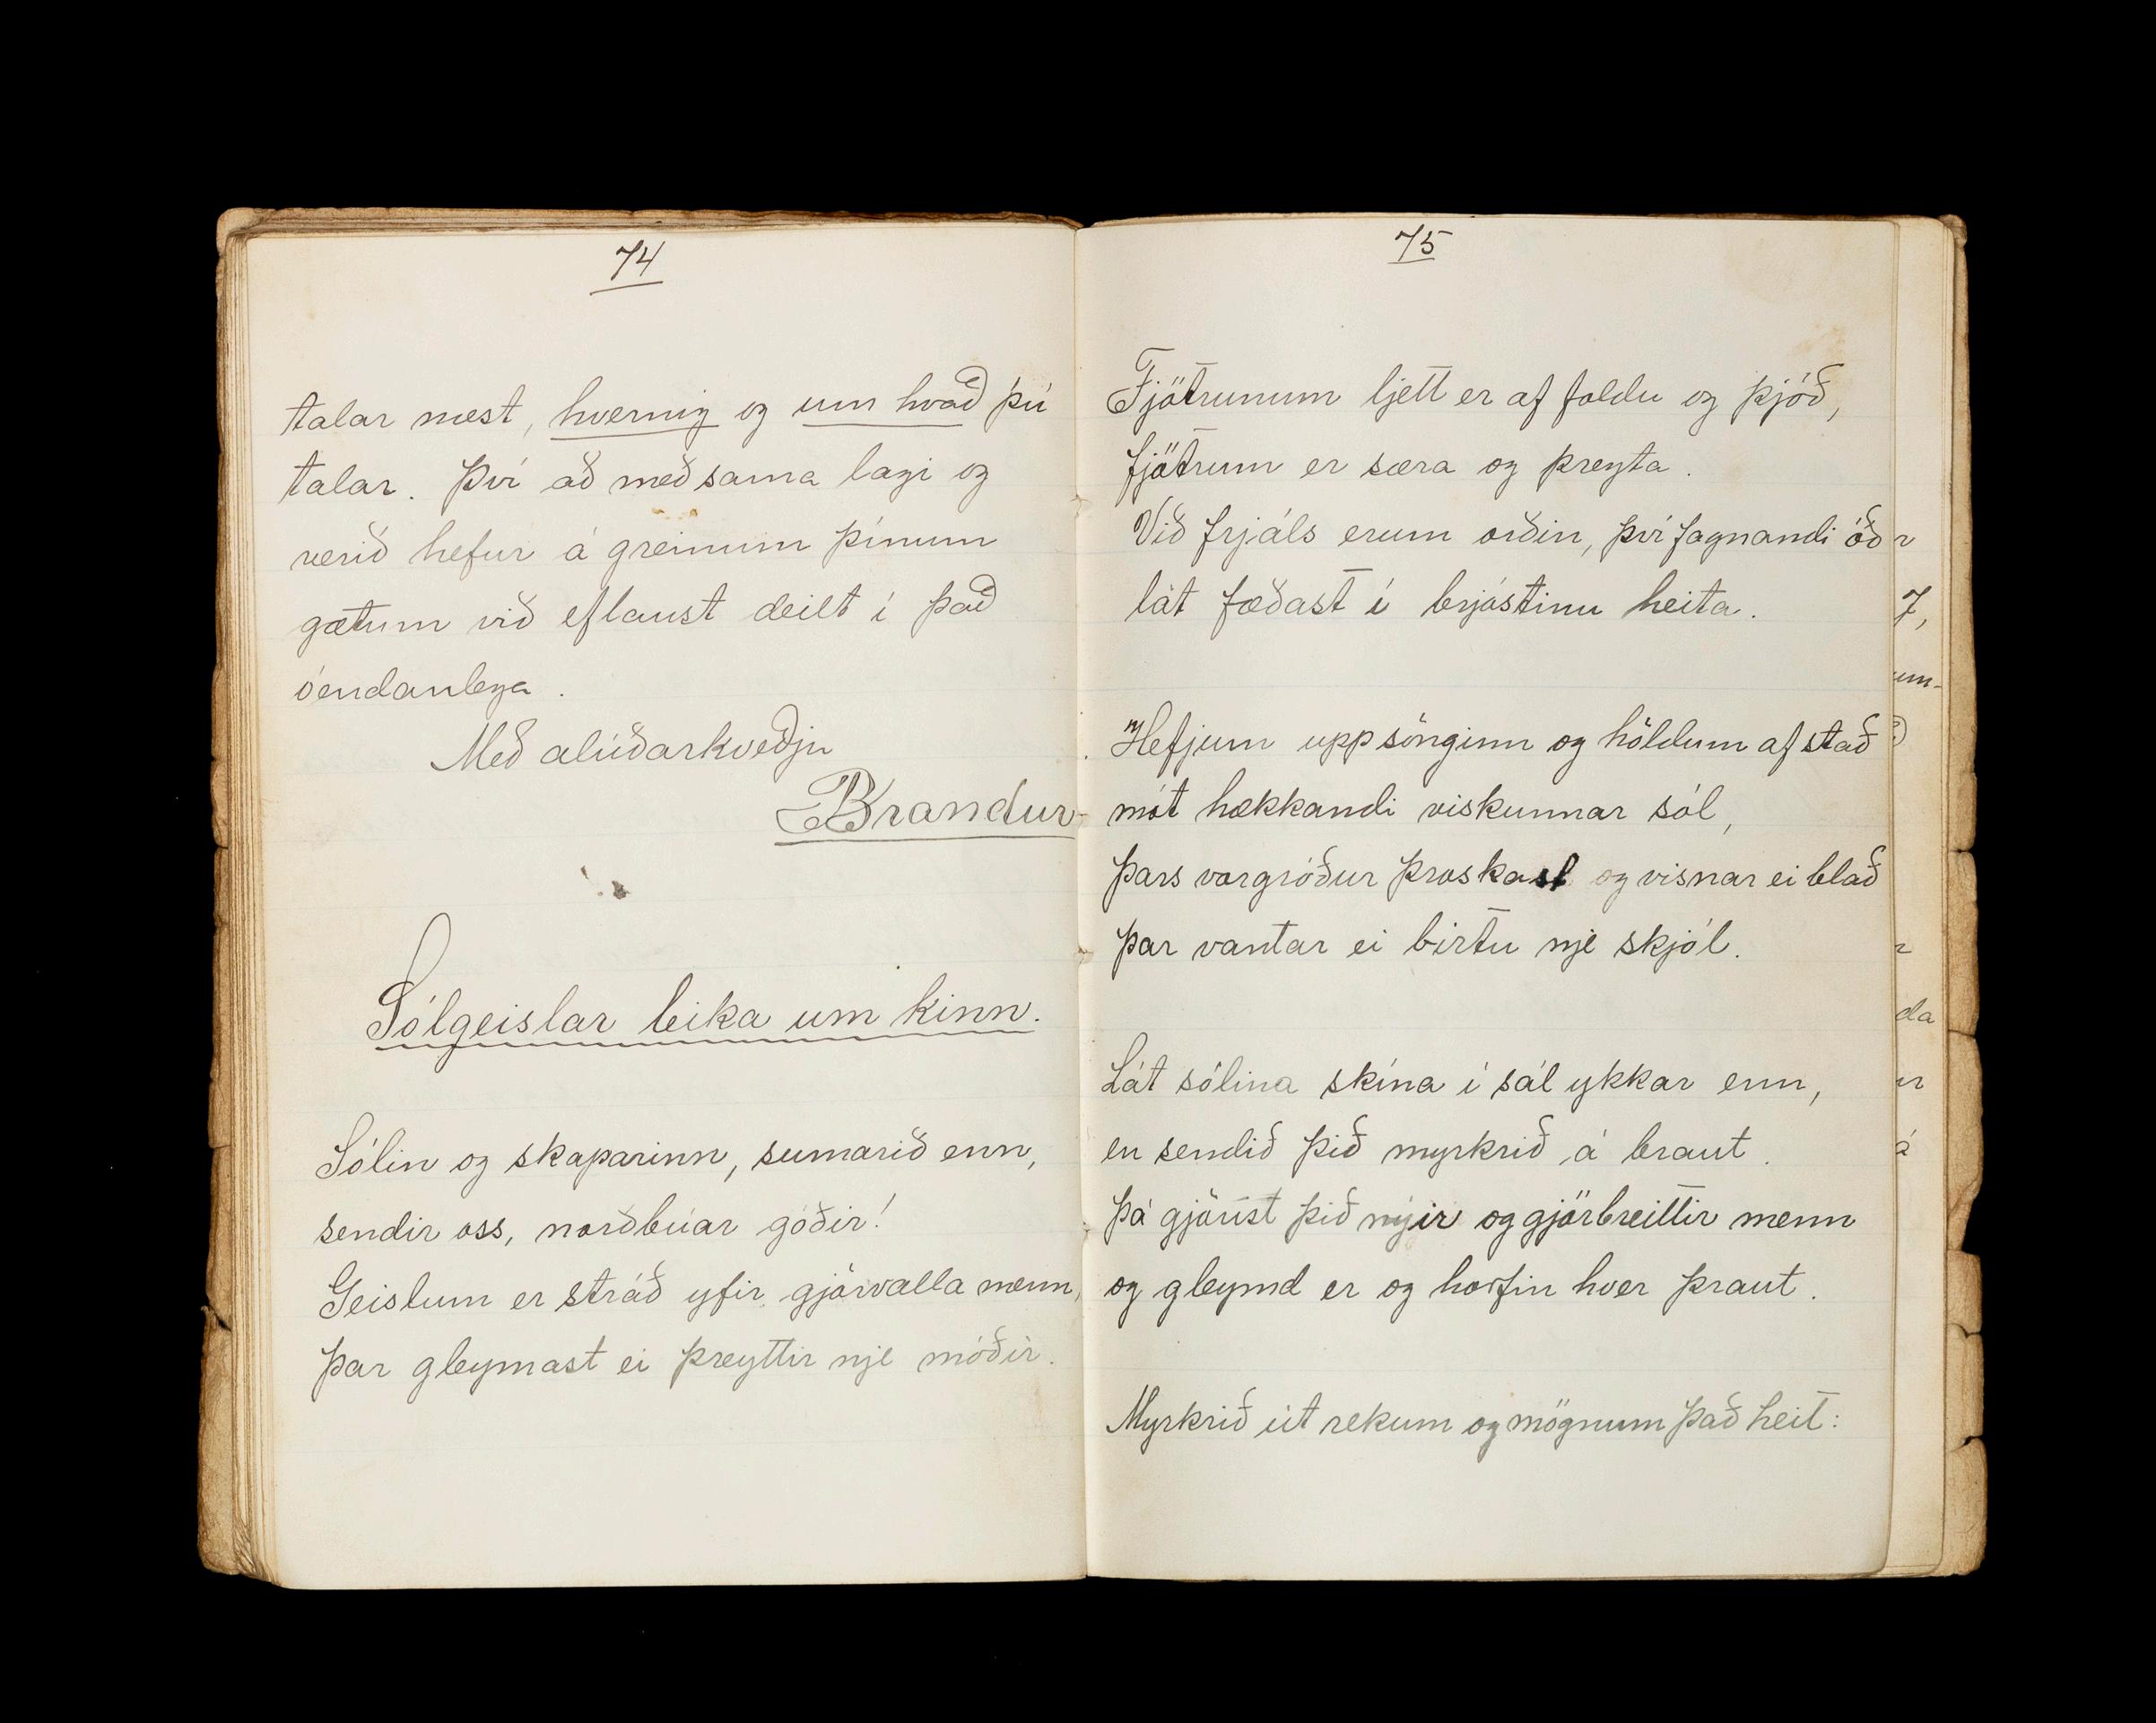 74
talar mest, hvernig og um hvað þú
talar. Því að með sama lagi og
verið hefur á greinum þínum
gætum við eflaust deilt í það
óendanlega.
Með alúðarkveðju
Brandur-
Sólgeislar leika um kinn.
Sólin og skaparinn, sumarið enn,
sendir oss, norðbúar góðir!
Geislum er stráð yfir gjörvalla menn,
þar gleymast ei þreyttir nje móðir.
75
Fjötrunum ljett er af foldu og þjóð,
fjötrum er særa og þreyta.
Við frjáls erum orðin, því fagnandi óð
lát fæðast í brjóstinu heita.
Hefjum upp sönginn og höldum af stað
mót hækkandi viskunnar sól,
þars vorgróður þroskast og visnar ei blað
þar vantar ei birtu nje skjól.
Lát sólina skína í sál ykkar enn,
en sendið þið myrkrið á braut.
Þá gjörist þið nýir og gjörbreittir menn
og gleymd er og horfin hver þraut.
Myrkrið út rekum og mögnum það heit: